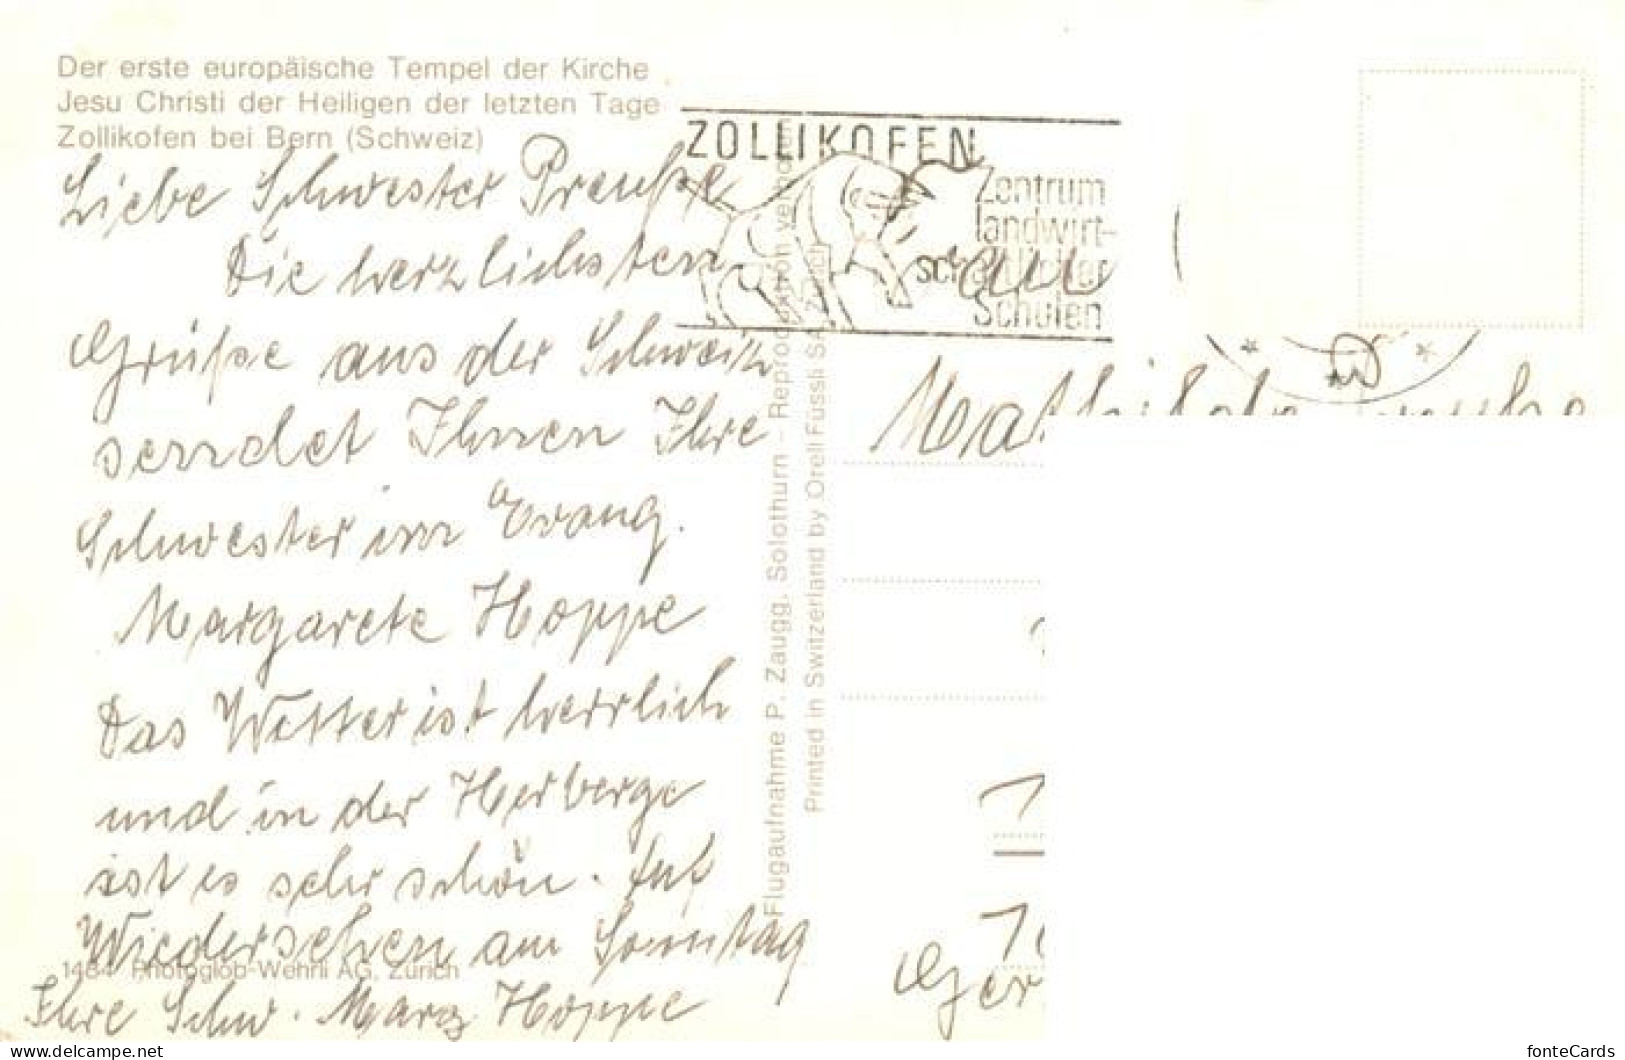 Der erste europäische Tempel der Kirche
Jesu Christi der Heiligen der letzten Tage
Zollikofen bei Bern (Schweiz)
Liebe Schwester Preuße
Die herzlichsten
Grüße aus der Schweiz
sendet Ihnen Ihre
Schwester im Evang.
Margarete Hoppe
Das Wetter ist herrlich
und in der Herberge
ist es sehr schön. Auf
Wiedersehen am Sonntag
1484 Photoglob-Wehrli AG, Zürich
Ihre Schw. Marg Hoppe
Flugaufnahme P. Zaugg, Solothurn - Reproduktion verboten
Printed in Switzerland by Orell Füssli SA Zürich
ZOLLIKOFEN
Zentrum
landwirt-
schaftlicher
Schulen
Ger
delcampe.net
fonteCards